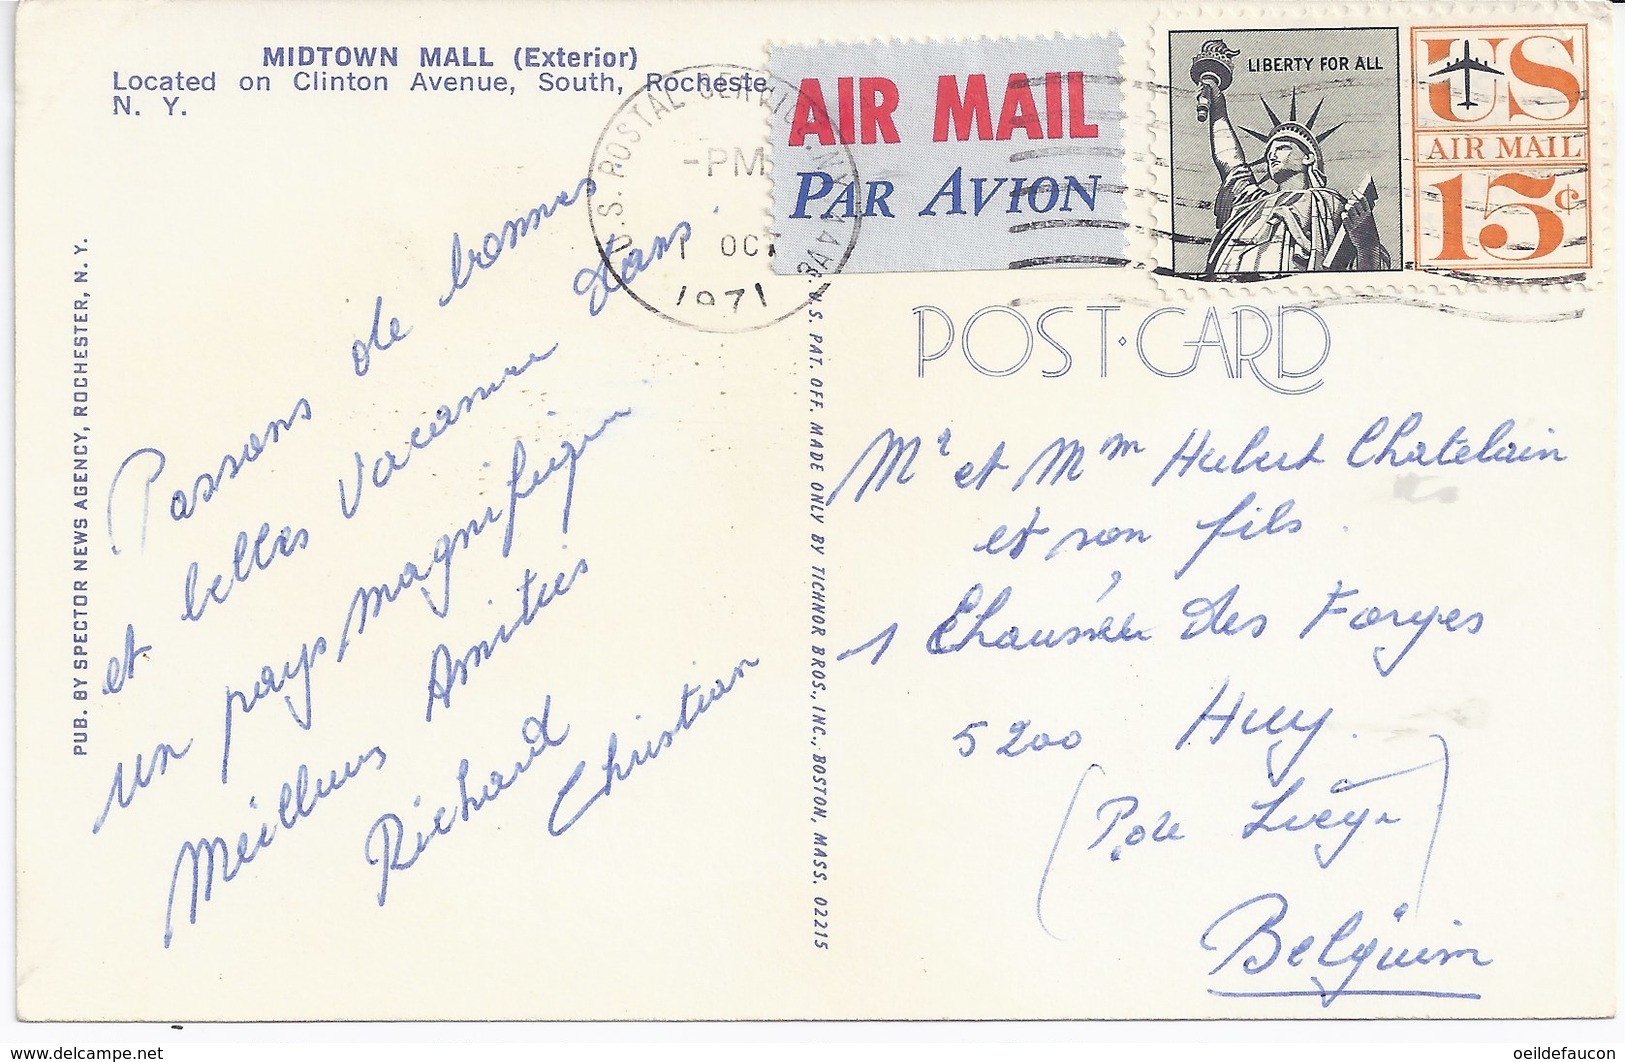 MIDTOWN MALL (Exterior)
Located on Clinton Avenue, South, Rocheste
N. Y.
PUB. BY SPECTOR NEWS AGENCY, ROCHESTER, N. Y.
Passons de bonnes
et belles vacanne dans
un pays magnifique
Meilleurs Amitiés
Richard
Christian
U.S. POSTAL SERVICE. N.Y.
-PM
1 OCT
1971
AIR MAIL
PAR AVION
LIBERTY FOR ALL
US
AIR MAIL
15¢
U.S. PAT. OFF. MADE ONLY BY TICHNOR BROS., INC., BOSTON, MASS. 02215
POST·CARD
Mr et Mm Hubert Chatelain
et son fils
1 Chaussée des Forges
5200 Huy
(Pce Liège)
Belguim
www.delcampe.net
oeildefaucon